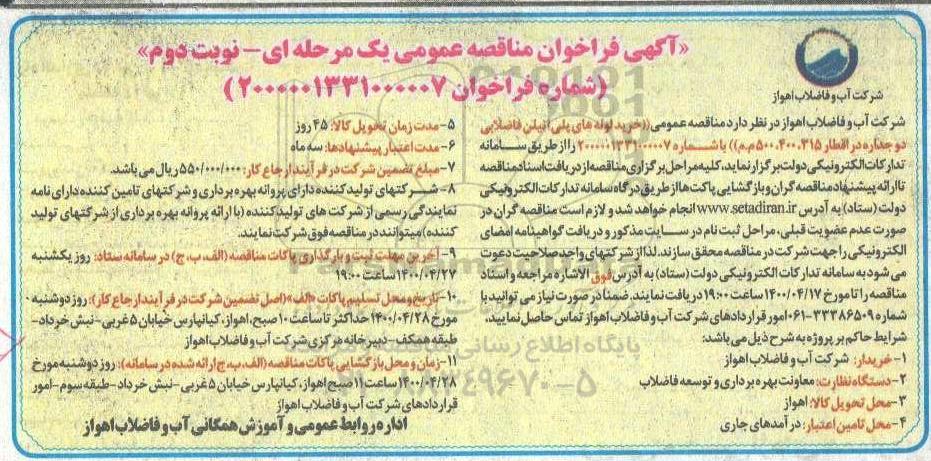 «آگهی فراخوان مناقصه عمومی یک مرحله ای – نوبت دوم»
(شماره فراخوان ۲۰۰۰۰۰۱۳۳۱۰۰۰۰۰۷)
شرکت آب و فاضلاب اهواز
شرکت آب و فاضلاب اهواز در نظر دارد مناقصه عمومی ((خرید لوله های پلی اتیلن فاضلابی
دو جداره در اقطار ۵۰۰،۴۰۰،۳۱۵ م.م)) با شماره ۲۰۰۰۰۰۱۳۳۱۰۰۰۰۰۷ را از طریق سامانه
تدارکات الکترونیکی دولت برگزار نماید، کلیه مراحل برگزاری مناقصه از دریافت اسناد مناقصه
تا ارائه پیشنهاد مناقصه گران و بازگشایی پاکت ها از طریق درگاه سامانه تدارکات الکترونیکی
دولت (ستاد) به آدرس www.setadiran.ir انجام خواهد شد و لازم است مناقصه گران در
صورت عدم عضویت قبلی، مراحل ثبت نام در سایت مذکور و دریافت گواهینامه امضای
الکترونیکی را جهت شرکت در مناقصه محقق سازند. لذا از شرکتهای واجد صلاحیت دعوت
می شود به سامانه تدارکات الکترونیکی دولت (ستاد) به آدرس فوق الاشاره مراجعه و اسناد
مناقصه را تا مورخ ۱۴۰۰/۰۴/۱۷ ساعت ۱۹:۰۰ دریافت نمایند. ضمنا در صورت نیاز می توانید با
شماره ۳۳۳۸۶۵۰۹-۰۶۱ امور قراردادهای شرکت آب و فاضلاب اهواز تماس حاصل نمایید.
شرایط حاکم بر پروژه به شرح ذیل می باشد:
۱- خریدار: شرکت آب و فاضلاب اهواز
۲- دستگاه نظارت: معاونت بهره برداری و توسعه فاضلاب
۳- محل تحویل کالا: اهواز
۴- محل تامین اعتبار: درآمدهای جاری
۵- مدت زمان تحویل کالا: ۴۵ روز
۶- مدت اعتبار پیشنهادها: سه ماه
۷- مبلغ تضمین شرکت در فرآیند ارجاع کار: ۵۵۰/۰۰۰/۰۰۰ ریال می باشد.
۸- شرکتهای تولید کننده دارای پروانه بهره برداری و شرکتهای تامین کننده دارای نامه
نمایندگی رسمی از شرکت های تولید کننده (با ارائه پروانه بهره برداری از شرکتهای تولید
کننده) میتوانند در مناقصه فوق شرکت نمایند.
۹- آخرین مهلت ثبت و بارگذاری پاکات مناقصه (الف، ب، ج) در سامانه ستاد: روز یکشنبه
۱۴۰۰/۰۴/۲۷ ساعت ۱۹:۰۰
۱۰- تاریخ و محل تسلیم پاکات «الف» (اصل تضمین شرکت در فرآیند ارجاع کار): روز دوشنبه
مورخ ۱۴۰۰/۰۴/۲۸ حداکثر تا ساعت ۱۰ صبح، اهواز، کیانپارس خیابان ۵ غربی – نبش خرداد –
طبقه همکف – دبیرخانه مرکزی شرکت آب و فاضلاب اهواز
۱۱- زمان و محل بازگشایی پاکات مناقصه (الف، ب، ج ارائه شده در سامانه): روز دوشنبه مورخ
۱۴۰۰/۰۴/۲۸ ساعت ۱۱ صبح، اهواز، کیانپارس خیابان ۵ غربی – نبش خرداد – طبقه سوم – امور
قراردادهای شرکت آب و فاضلاب اهواز
اداره روابط عمومی و آموزش همگانی آب و فاضلاب اهواز